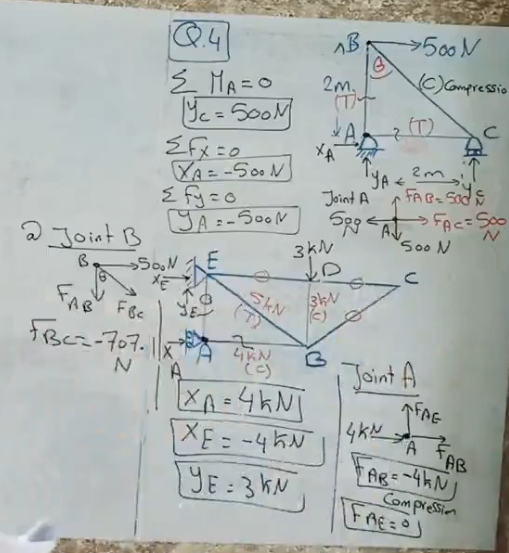 Q.4
Σ M_A = 0
y_C = 500N
Σ Fx = 0
X_A = -500N
Σ Fy = 0
y_A = -500N
B → 500N
θ
(C) Compressio
2m
(T)
A (T) C
X_A
y_A 2m y_C
Joint A F_AB = 500N
500 A F_AC = 500 N
500N
2) Joint B
B 500N
θ
F_AB F_BC
F_BC = -707. N
3kN
X_E E D C
y_E 5kN (T) 3kN (C)
X_A A 4kN (C) B
X_A = 4kN
X_E = -4kN
y_E = 3kN
Joint A
F_AE
4kN A F_AB
F_AB = -4kN
Compression
F_AE = 0